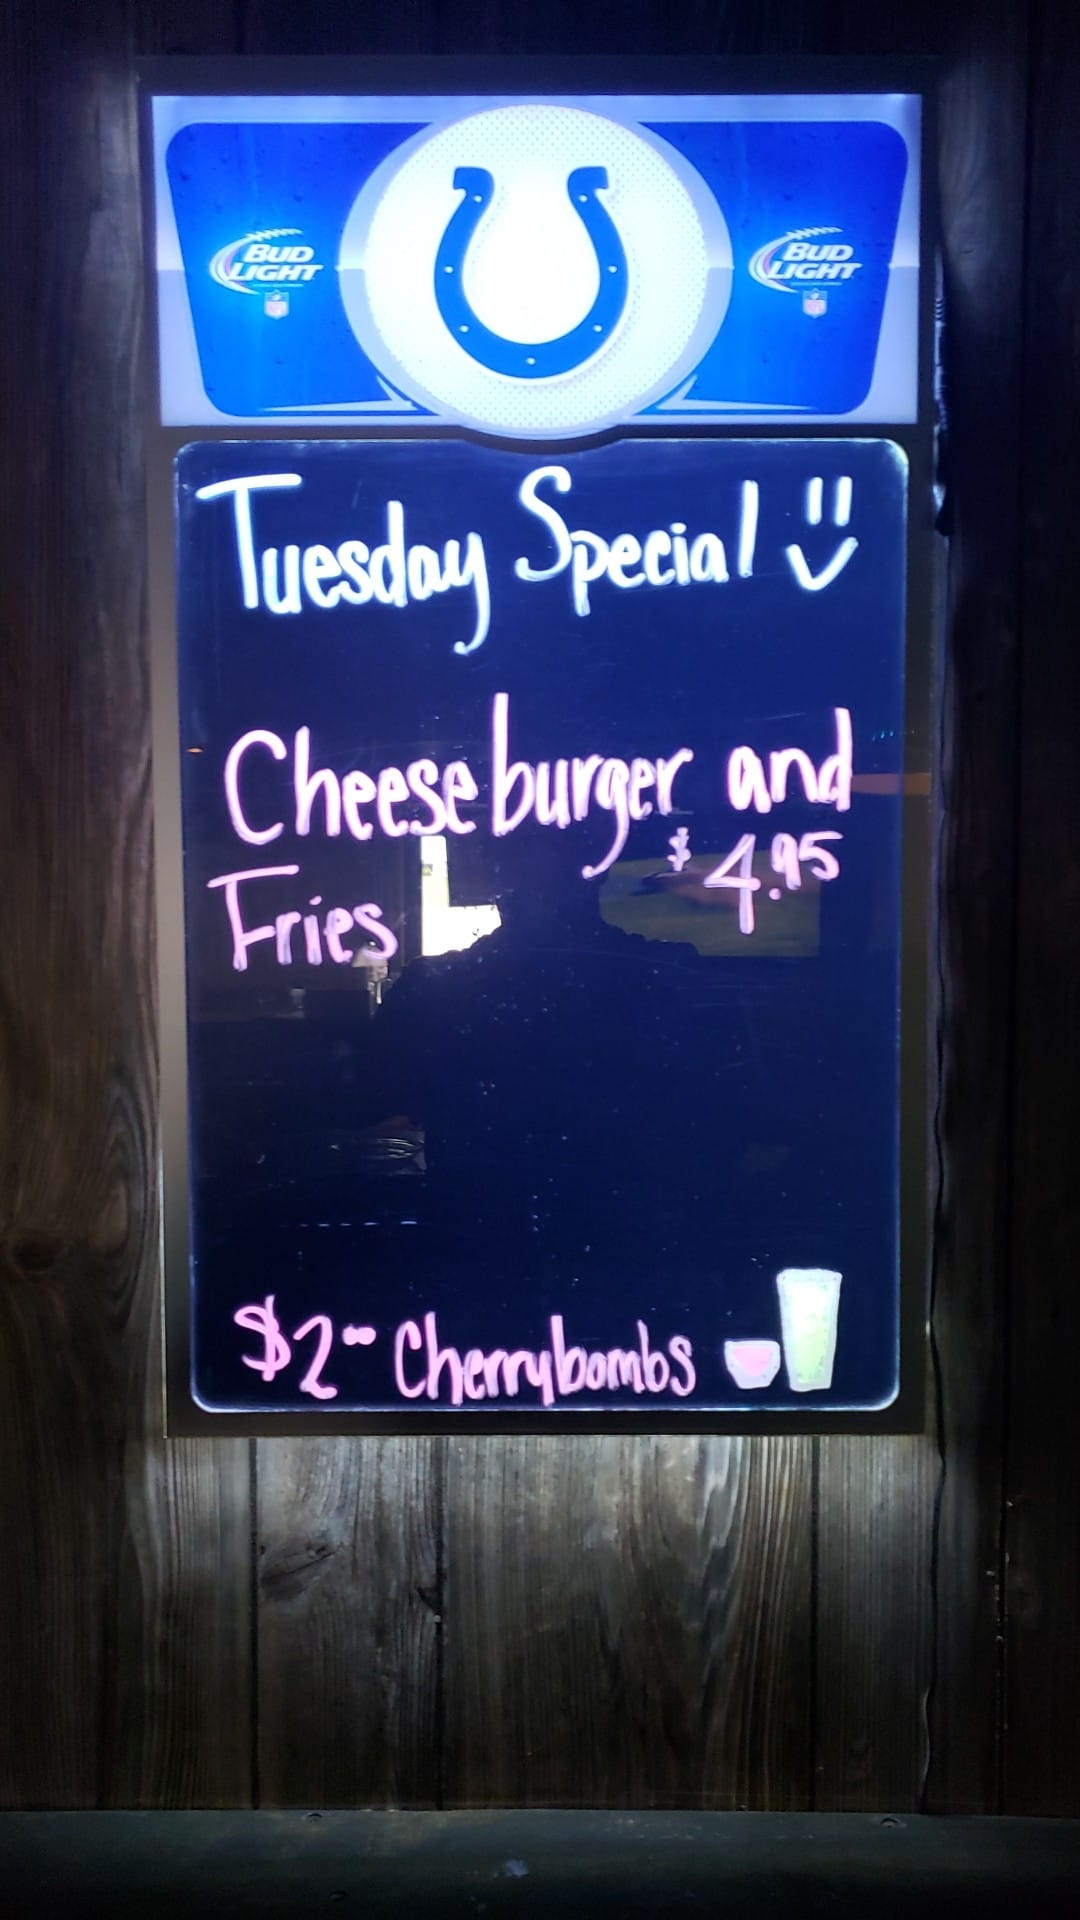 BUD LIGHT
BUD LIGHT
Tuesday Special
Cheeseburger and
Fries $4.95
$2.00 Cherrybombs